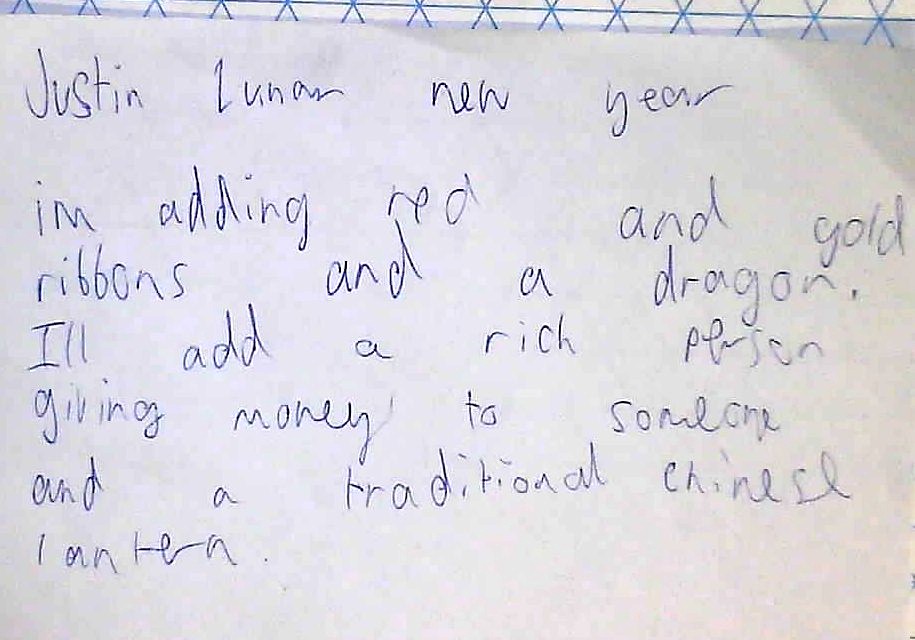 Justin lunar new year
im adding red and gold
ribbons and a dragon.
Ill add a rich person
giving money to someone
and a traditional chinese
lantern.